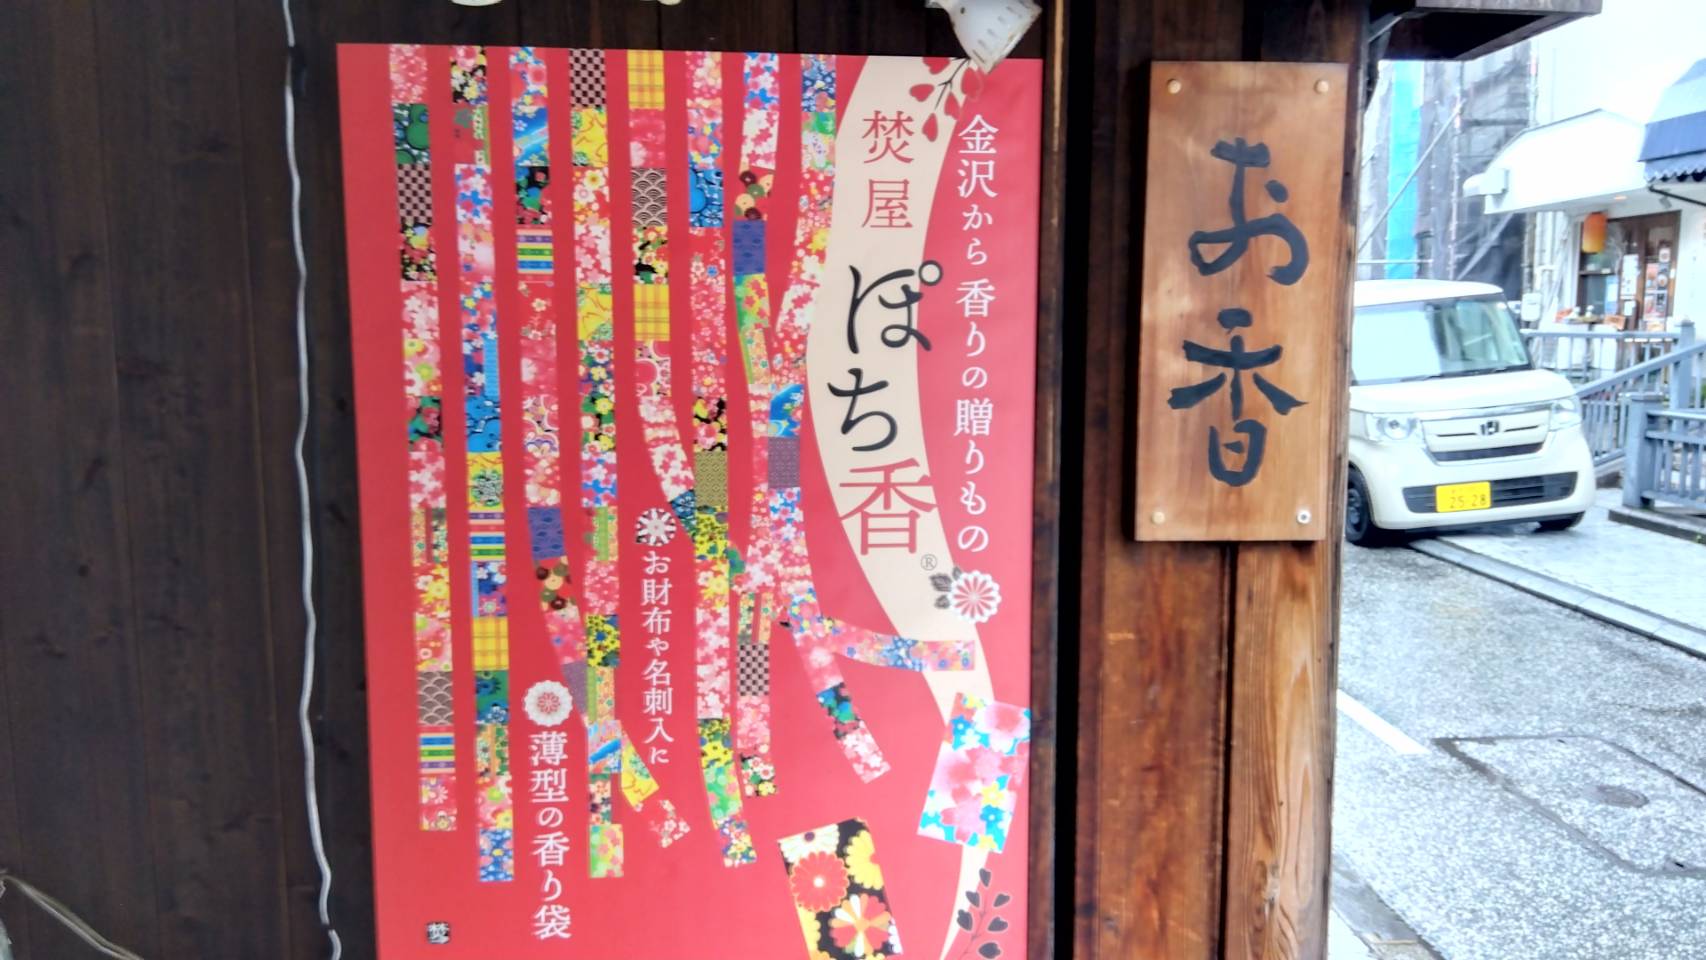 金沢から香りの贈りもの
焚屋
ぽち香®
お財布や名刺入に
薄型の香り袋
お香
25-28